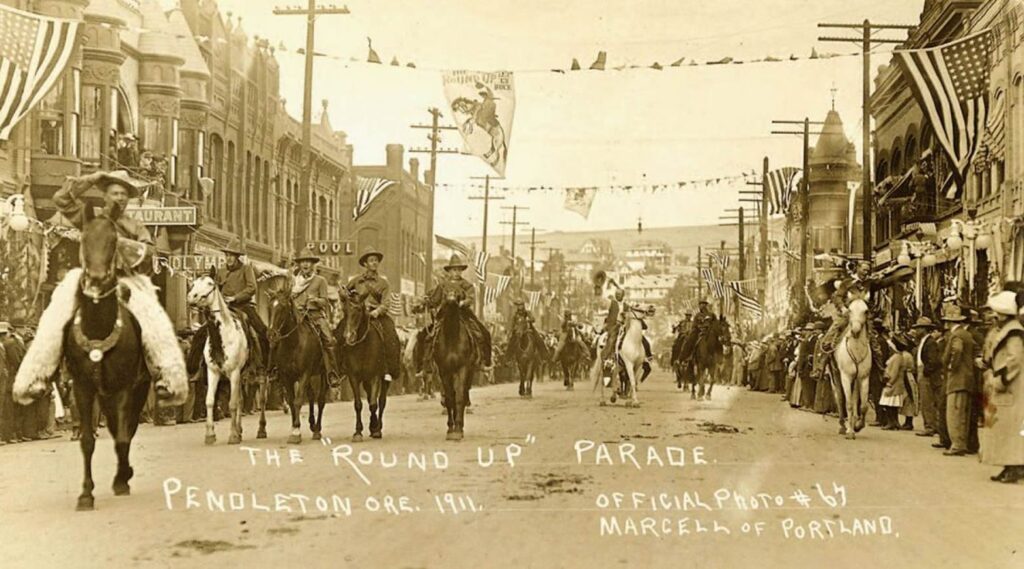 THE
ROUND UP
TAURANT
OLYMP
POOL
THE "ROUND UP" PARADE.
PENDLETON ORE. 1911.
OFFICIAL PHOTO # 67
MARCELL OF PORTLAND.